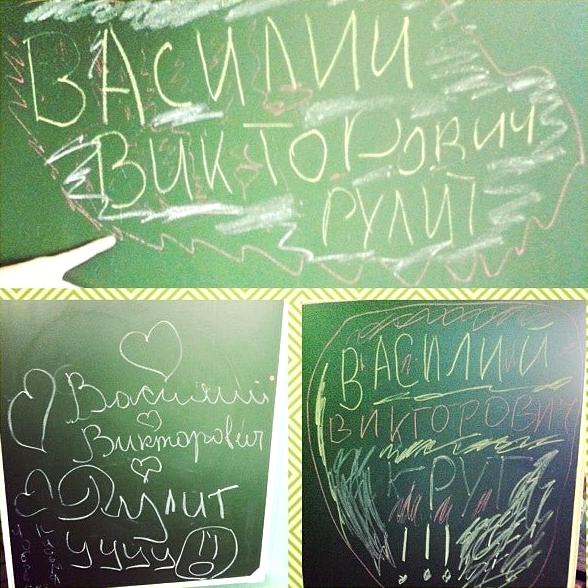 ВАСИЛИЙ
ВИКТОРОВИЧ
РУЛИТ
Василий
Викторович
Рулит
уууу!!
ВАСИЛИЙ
ВИКТОРОВИЧ
КРУТ
!!!